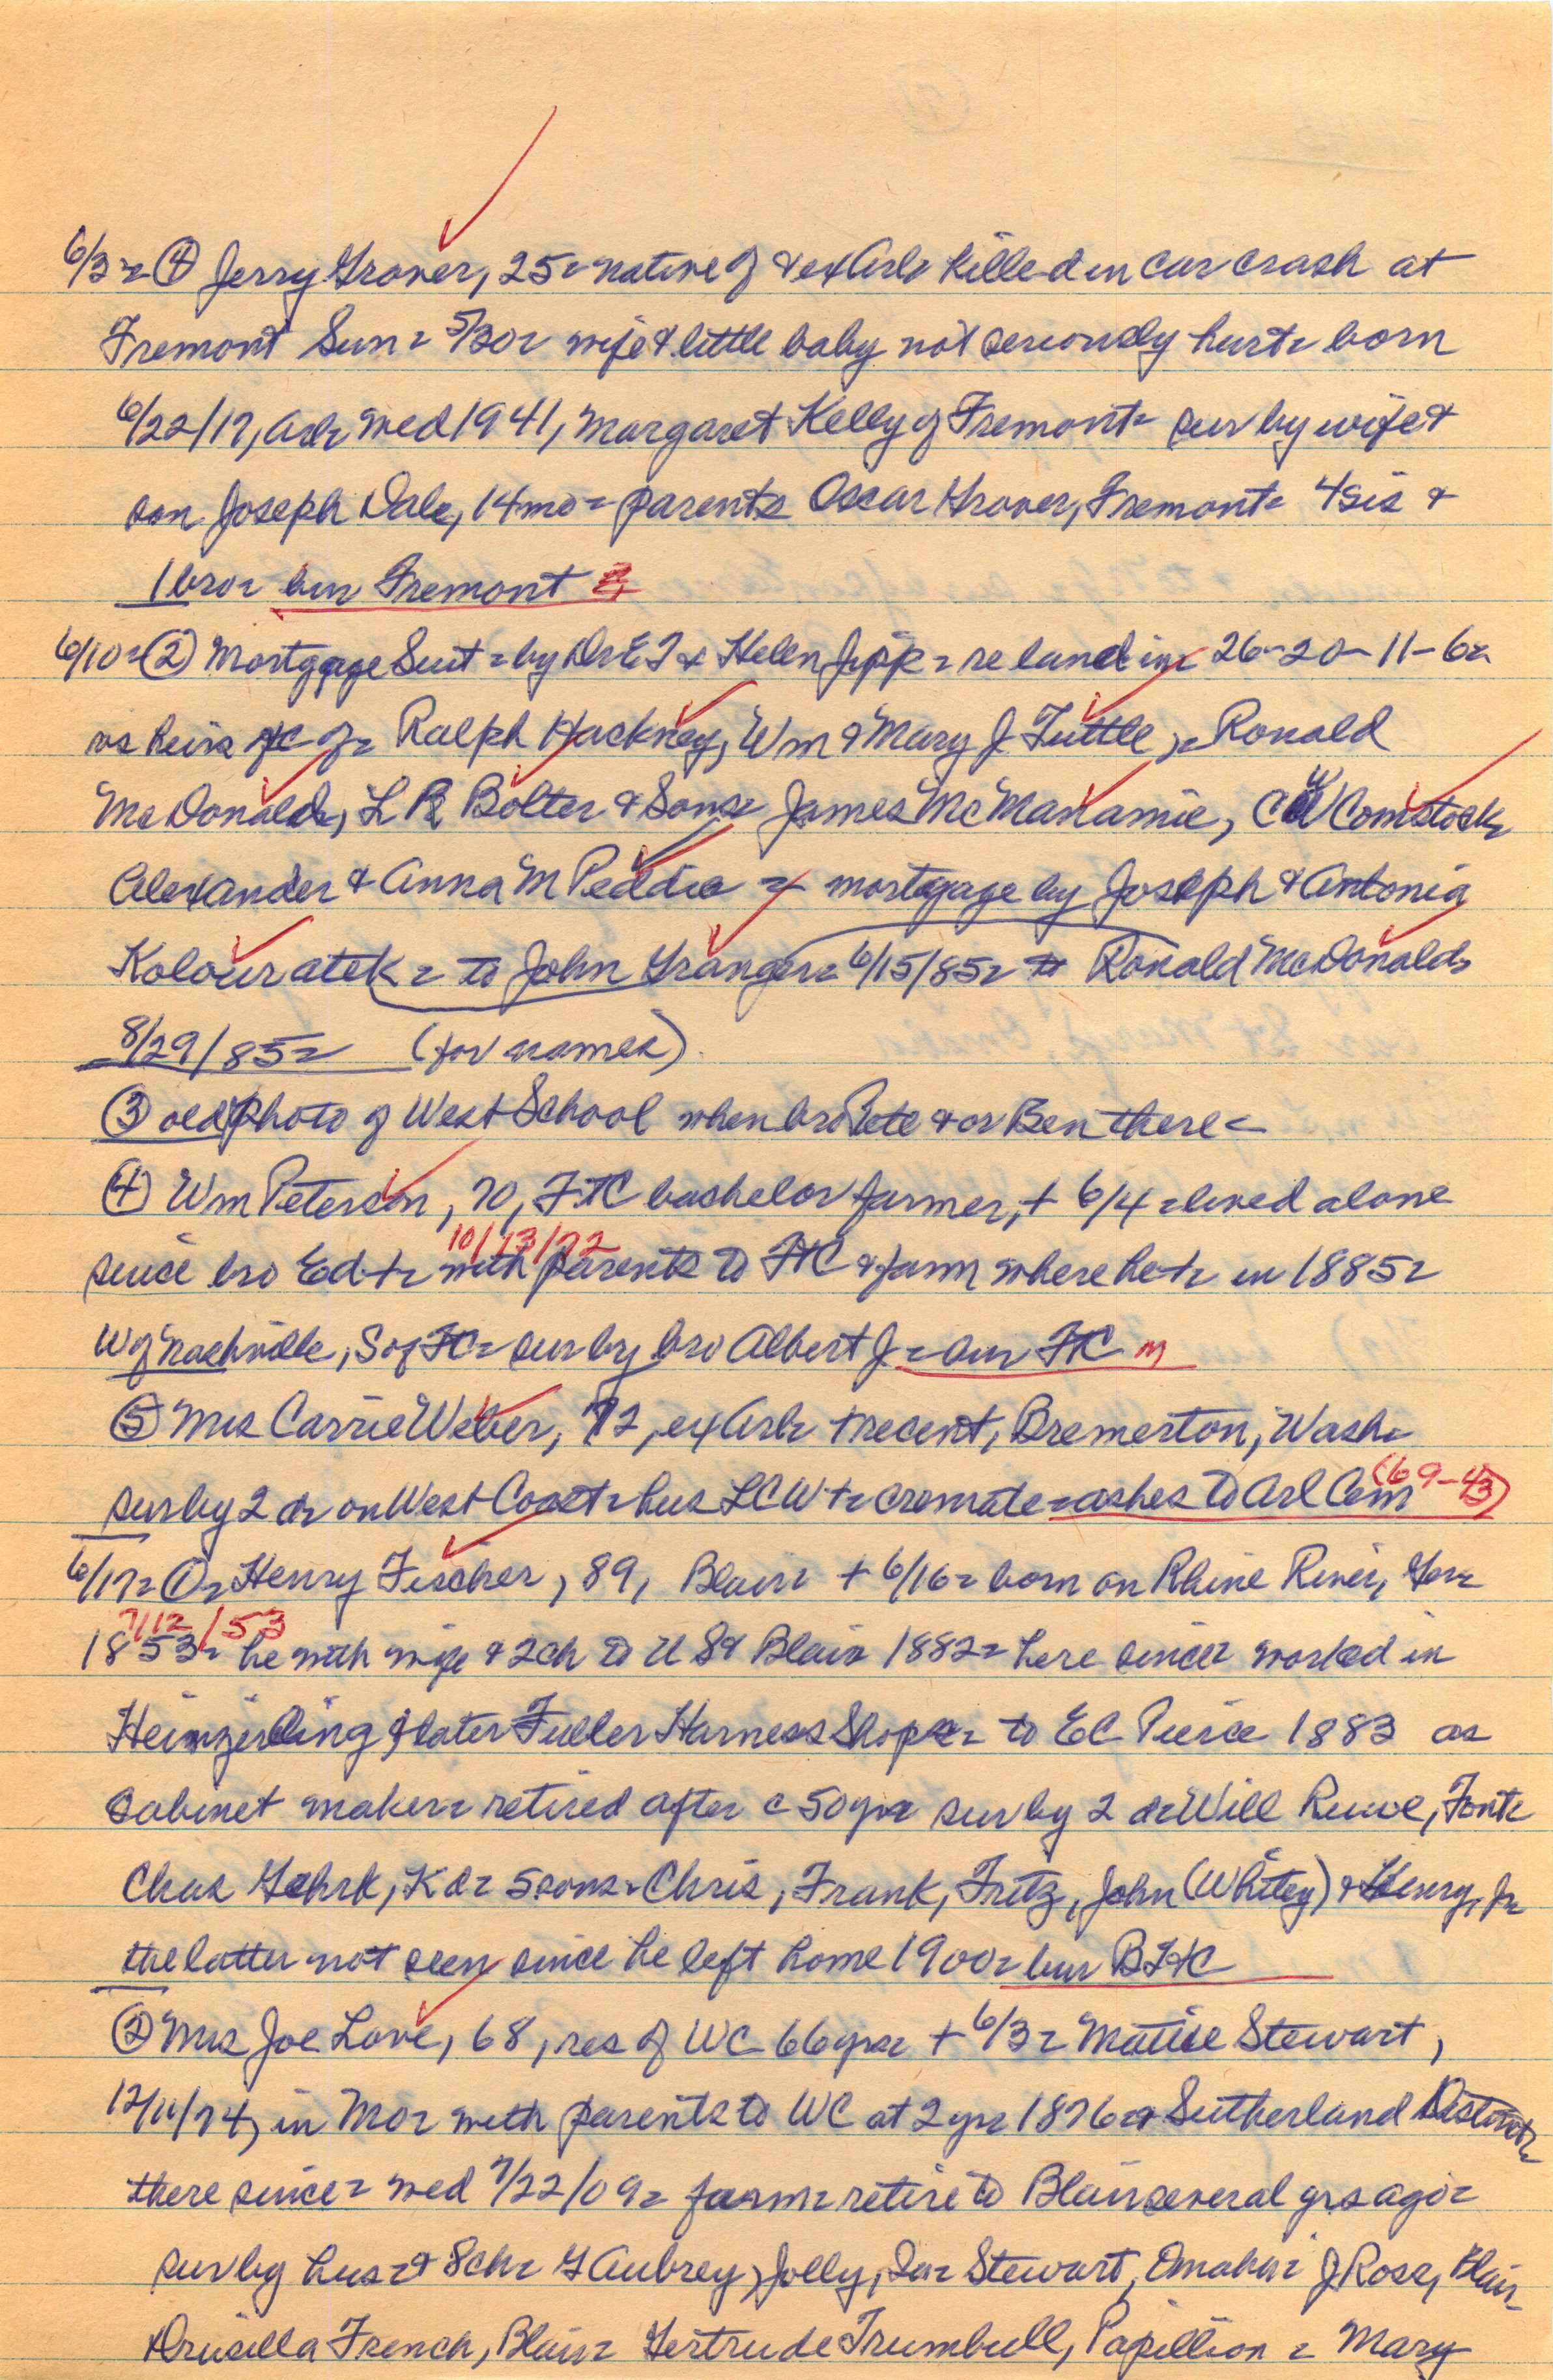 6/3 = ④ Jerry Grover, 25 = native of & ex Arl = killed in car crash at
Fremont Sun = 5/30 = wife & little baby not seriously hurt = born
6/22/17, Arl = med 1941, Margaret Kelly of Fremont = sur by wife &
son Joseph Dale, 14 mo = parents Oscar Grover, Fremont = 4 sis &
1 bro = bur Fremont
6/10 = ② Mortgage Suit = by Dr E J & Helen Jipp = re land in 26-20-11-6 =
vs heirs of Ralph Hackney, Wm & Mary J Tuttle, = Ronald
McDonald, L R Bolter & Sons = James McManamie, C W Comstock
Alexander & Anna M Peddie = mortgage by Joseph & Antonia
Kolouratek = to John Granger = 6/15/85 = Ronald McDonald =
8/29/85 = (for names)
③ old photo of West School when bro Pete & or Ben there =
④ Wm Peterson, 70, FtC bachelor farmer, + 6/4 = lived alone
10/13/72
since bro Ed + = with parents to FtC & farm where he + = in 1885 =
W of Nashville, S of FtC = sur by bro Albert J = bur FtC m
⑤ Mrs Carrie Weber, 72, ex Arl = + recent, Bremerton, Wash =
sur by 2 d = on West Coast = hus LCW + = cremate = ashes to Arl Cem (69-43)
6/17 = ① = Henry Fischer, 89, Blair = + 6/16 = born on Rhine River, Ger =
7/12/53
1853 = he with wife & 2 ch to U S & Blair 1882 = here since = worked in
Heimzerling & later Fuller Harness Shops = to E C Pierce 1883 as
cabinet maker = retired after c 50 yrs = sur by 2 d = Will Ruwe, Font =
Chas Gehrk, Kd = 5 sons = Chris, Frank, Fritz, John (Whitey) & Henry, Jr
the latter not seen since he left home 1900 = bur B
② Mrs Joe Love, 68, res of WC 66 yrs = + 6/3 = Mattie Stewart,
12/11/74, in Mo = with parents to WC at 2 yr = 1876 = Sutherland District =
there since = med 7/22/09 = farm = retire to Blair several yrs ago =
sur by hus = & 8 ch = G Aubrey, Jolly, Ia = Stewart, Omaha = J Ross, Blair =
Drusilla French, Blair = Gertrude Trumbull, Papillion = Mary